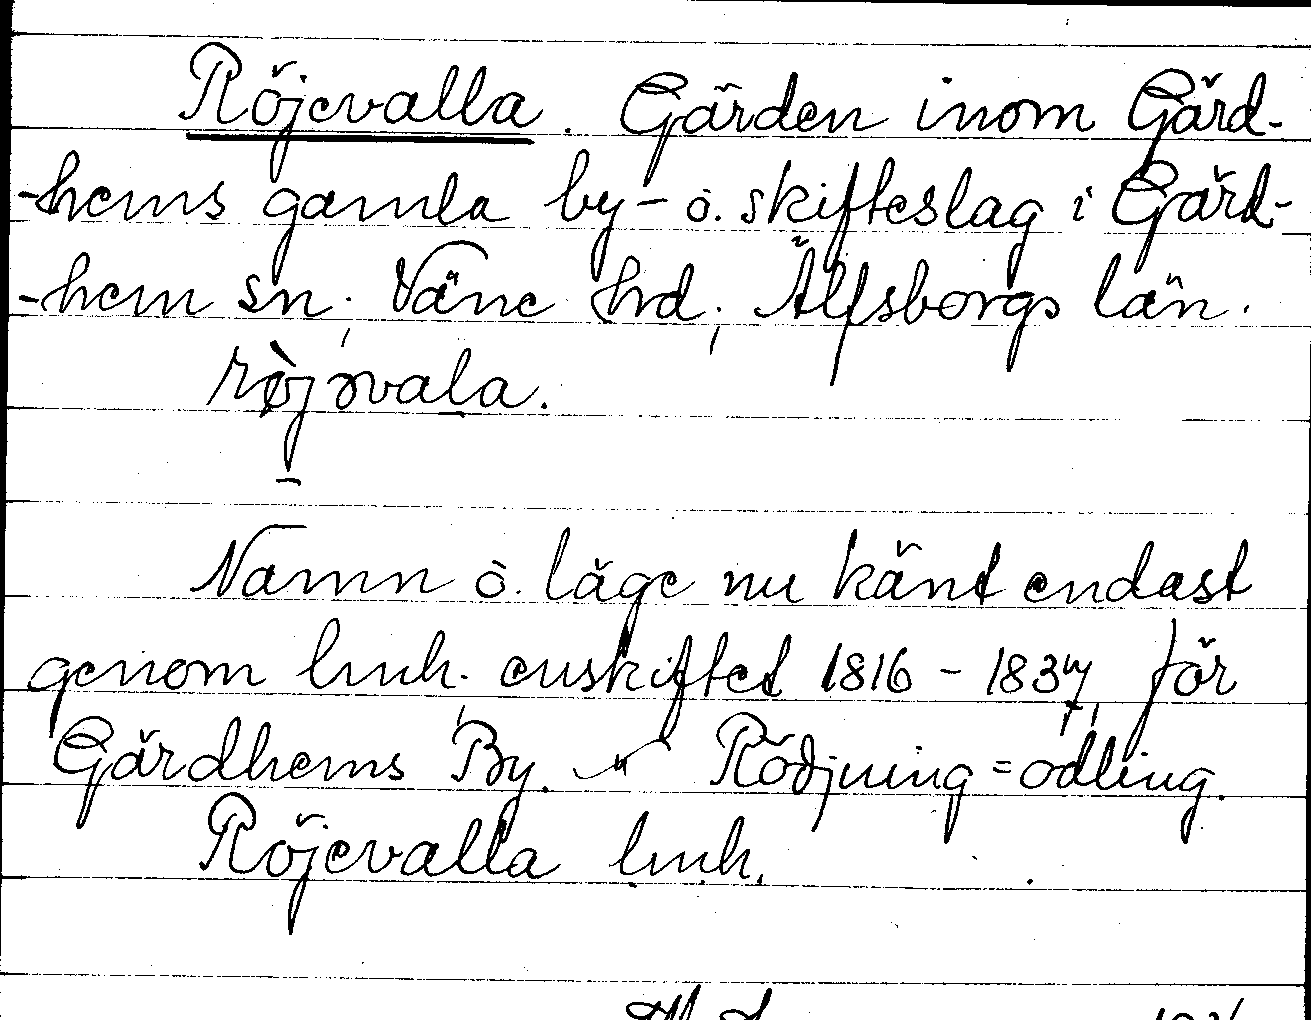 Röjevalla. Gärden inom Gärd-
-hems gamla by- o. skifteslag i Gärd-
-hem sn, Väne hrd, Älfsborgs län.
röjəvala.
Namn o. läge nu känt endast
genom lmh. enskiftet 1816 - 1837, för
Gärdhems By. Rödjning = odling.
Röjevalla lmh.